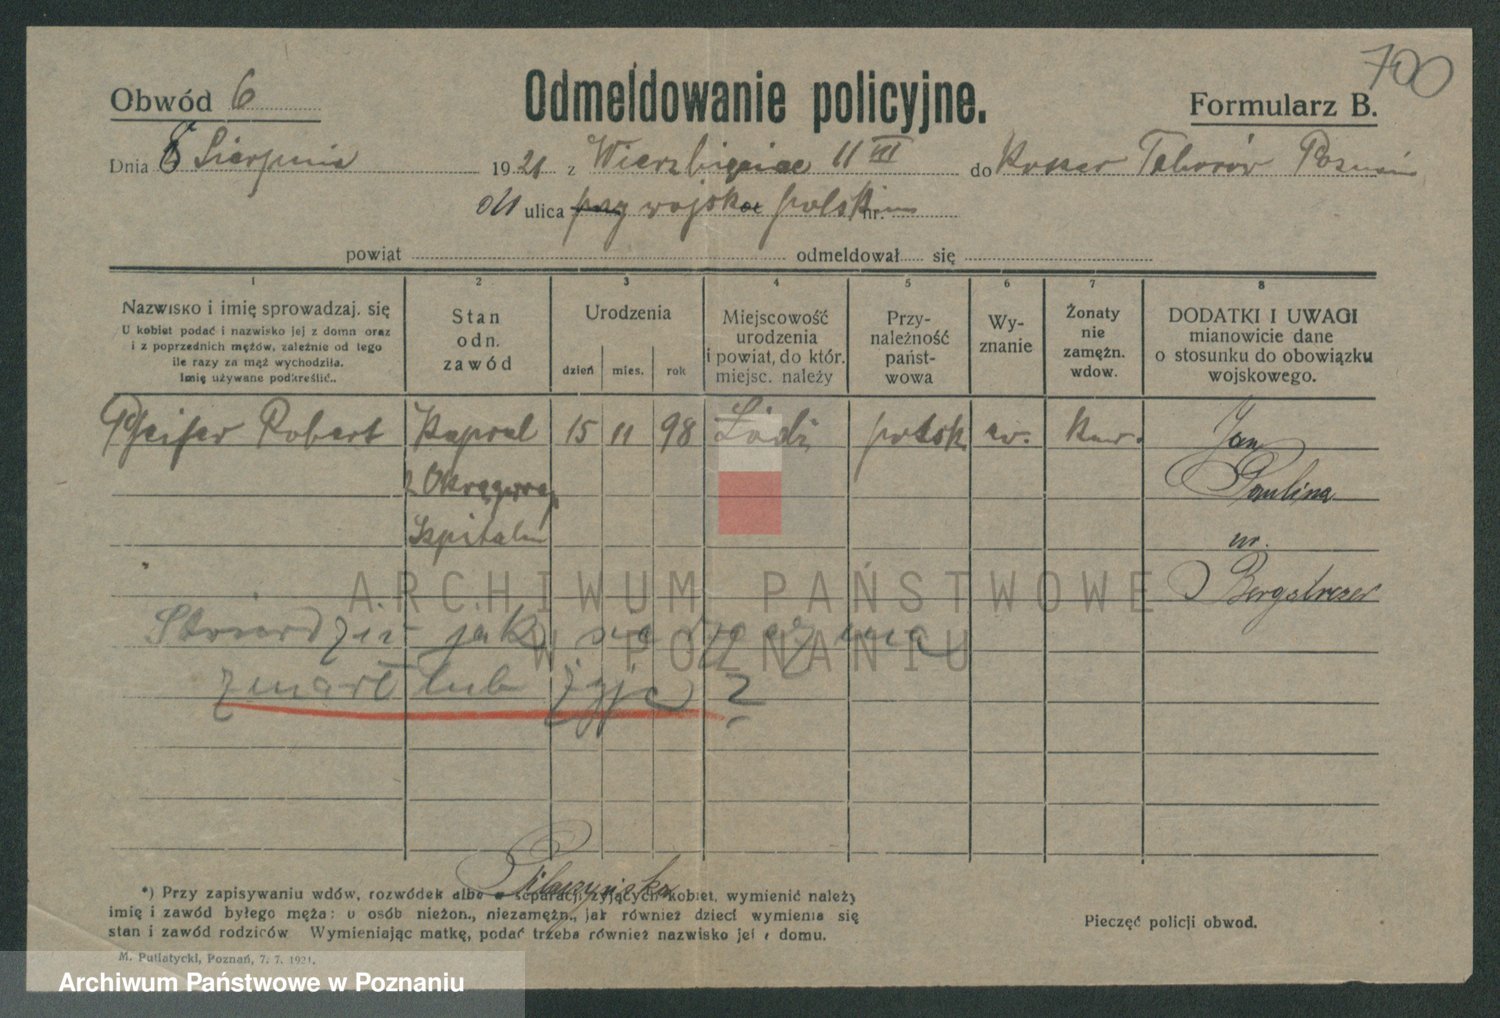 700
Obwód 6
Odmeldowanie policyjne.
Formularz B.
Dnia 8 Sierpnia 1921 z Wierzbięcice 11 III do Koszar Taborów Poznań
ulica przy wojsk polskim nr.
powiat odmeldował się
1 2 3 4 5 6 7 8
Nazwisko i imię sprowadzaj. się
U kobiet podać i nazwisko jej z domu oraz
i z poprzednich mężów, zależnie od tego
ile razy za mąż wychodziła.
Imię używane podkreślić..
Stan
odn.
zawód
Urodzenia
dzień mies. rok
Miejscowość
urodzenia
i powiat, do któr.
miejsc. należy
Przy-
należność
państ-
wowa
Wy-
znanie
Żonaty
nie
zamężn.
wdow.
DODATKI I UWAGI
mianowicie dane
o stosunku do obowiązku
wojskowego.
Pfeifer Robert Kapral 15 11 98 Łódź polsk ew. kaw. Jan
z Okręgowego Paulina
Szpitalu ur.
Stwierdzić jak się nazywa
zmarł lub żyje ?
ARCHIWUM PAŃSTWOWE
W POZNANIU
*) Przy zapisywaniu wdów, rozwódek albo w separacji żyjących kobiet, wymienić należy
imię i zawód byłego męża: u osób nieżon., niezamężn., jak również dzieci wymienia się
stan i zawód rodziców Wymieniając matkę, podać trzeba również nazwisko jej z domu.
Pieczęć policji obwod.
M. Putiatycki, Poznań, 7. 7. 1921.
Archiwum Państwowe w Poznaniu